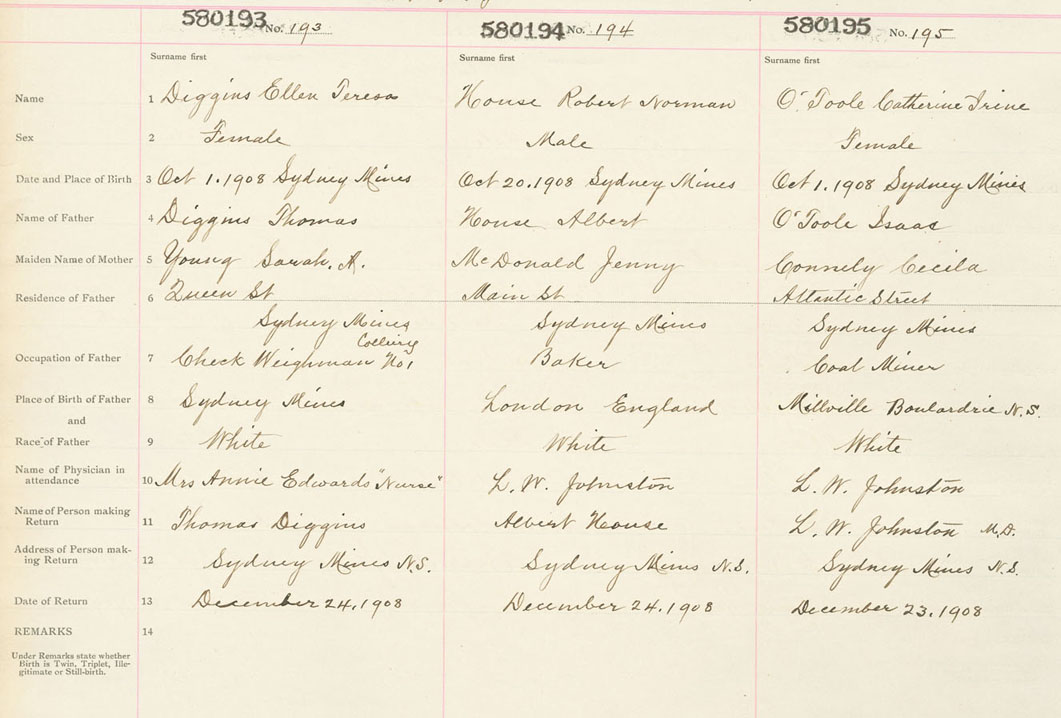 580193 No. 193 580194 No. 194 580195 No. 195
Surname first Surname first Surname first
Name 1 Diggins Ellen Teresa House Robert Norman O'Toole Catherine Irine
Sex 2 Female Male Female
Date and Place of Birth 3 Oct 1. 1908 Sydney Mines Oct 20. 1908 Sydney Mines Oct 1. 1908 Sydney Mines
Name of Father 4 Diggins Thomas House Albert O'Toole Isaac
Maiden Name of Mother 5 Young Sarah. A. McDonald Jenny Connely Cecila
Residence of Father 6 Queen St Main St Atlantic Street
Sydney Mines Sydney Mines Sydney Mines
Colliery
Occupation of Father 7 Check Weighman No 1 Baker Coal Miner
Place of Birth of Father 8 Sydney Mines London England Millville Boulardrie N.S.
and
Race of Father 9 White White White
Name of Physician in
attendance 10 Mrs Annie Edwards "Nurse" L. W. Johnston L. W. Johnston
Name of Person making
Return 11 Thomas Diggins Albert House L. W. Johnston M.D.
Address of Person mak-
ing Return 12 Sydney Mines N.S. Sydney Mines N.S. Sydney Mines N.S.
Date of Return 13 December 24, 1908 December 24. 1908 December 23. 1908
REMARKS 14
Under Remarks state whether
Birth is Twin, Triplet, Ille-
gitimate or Still-birth.